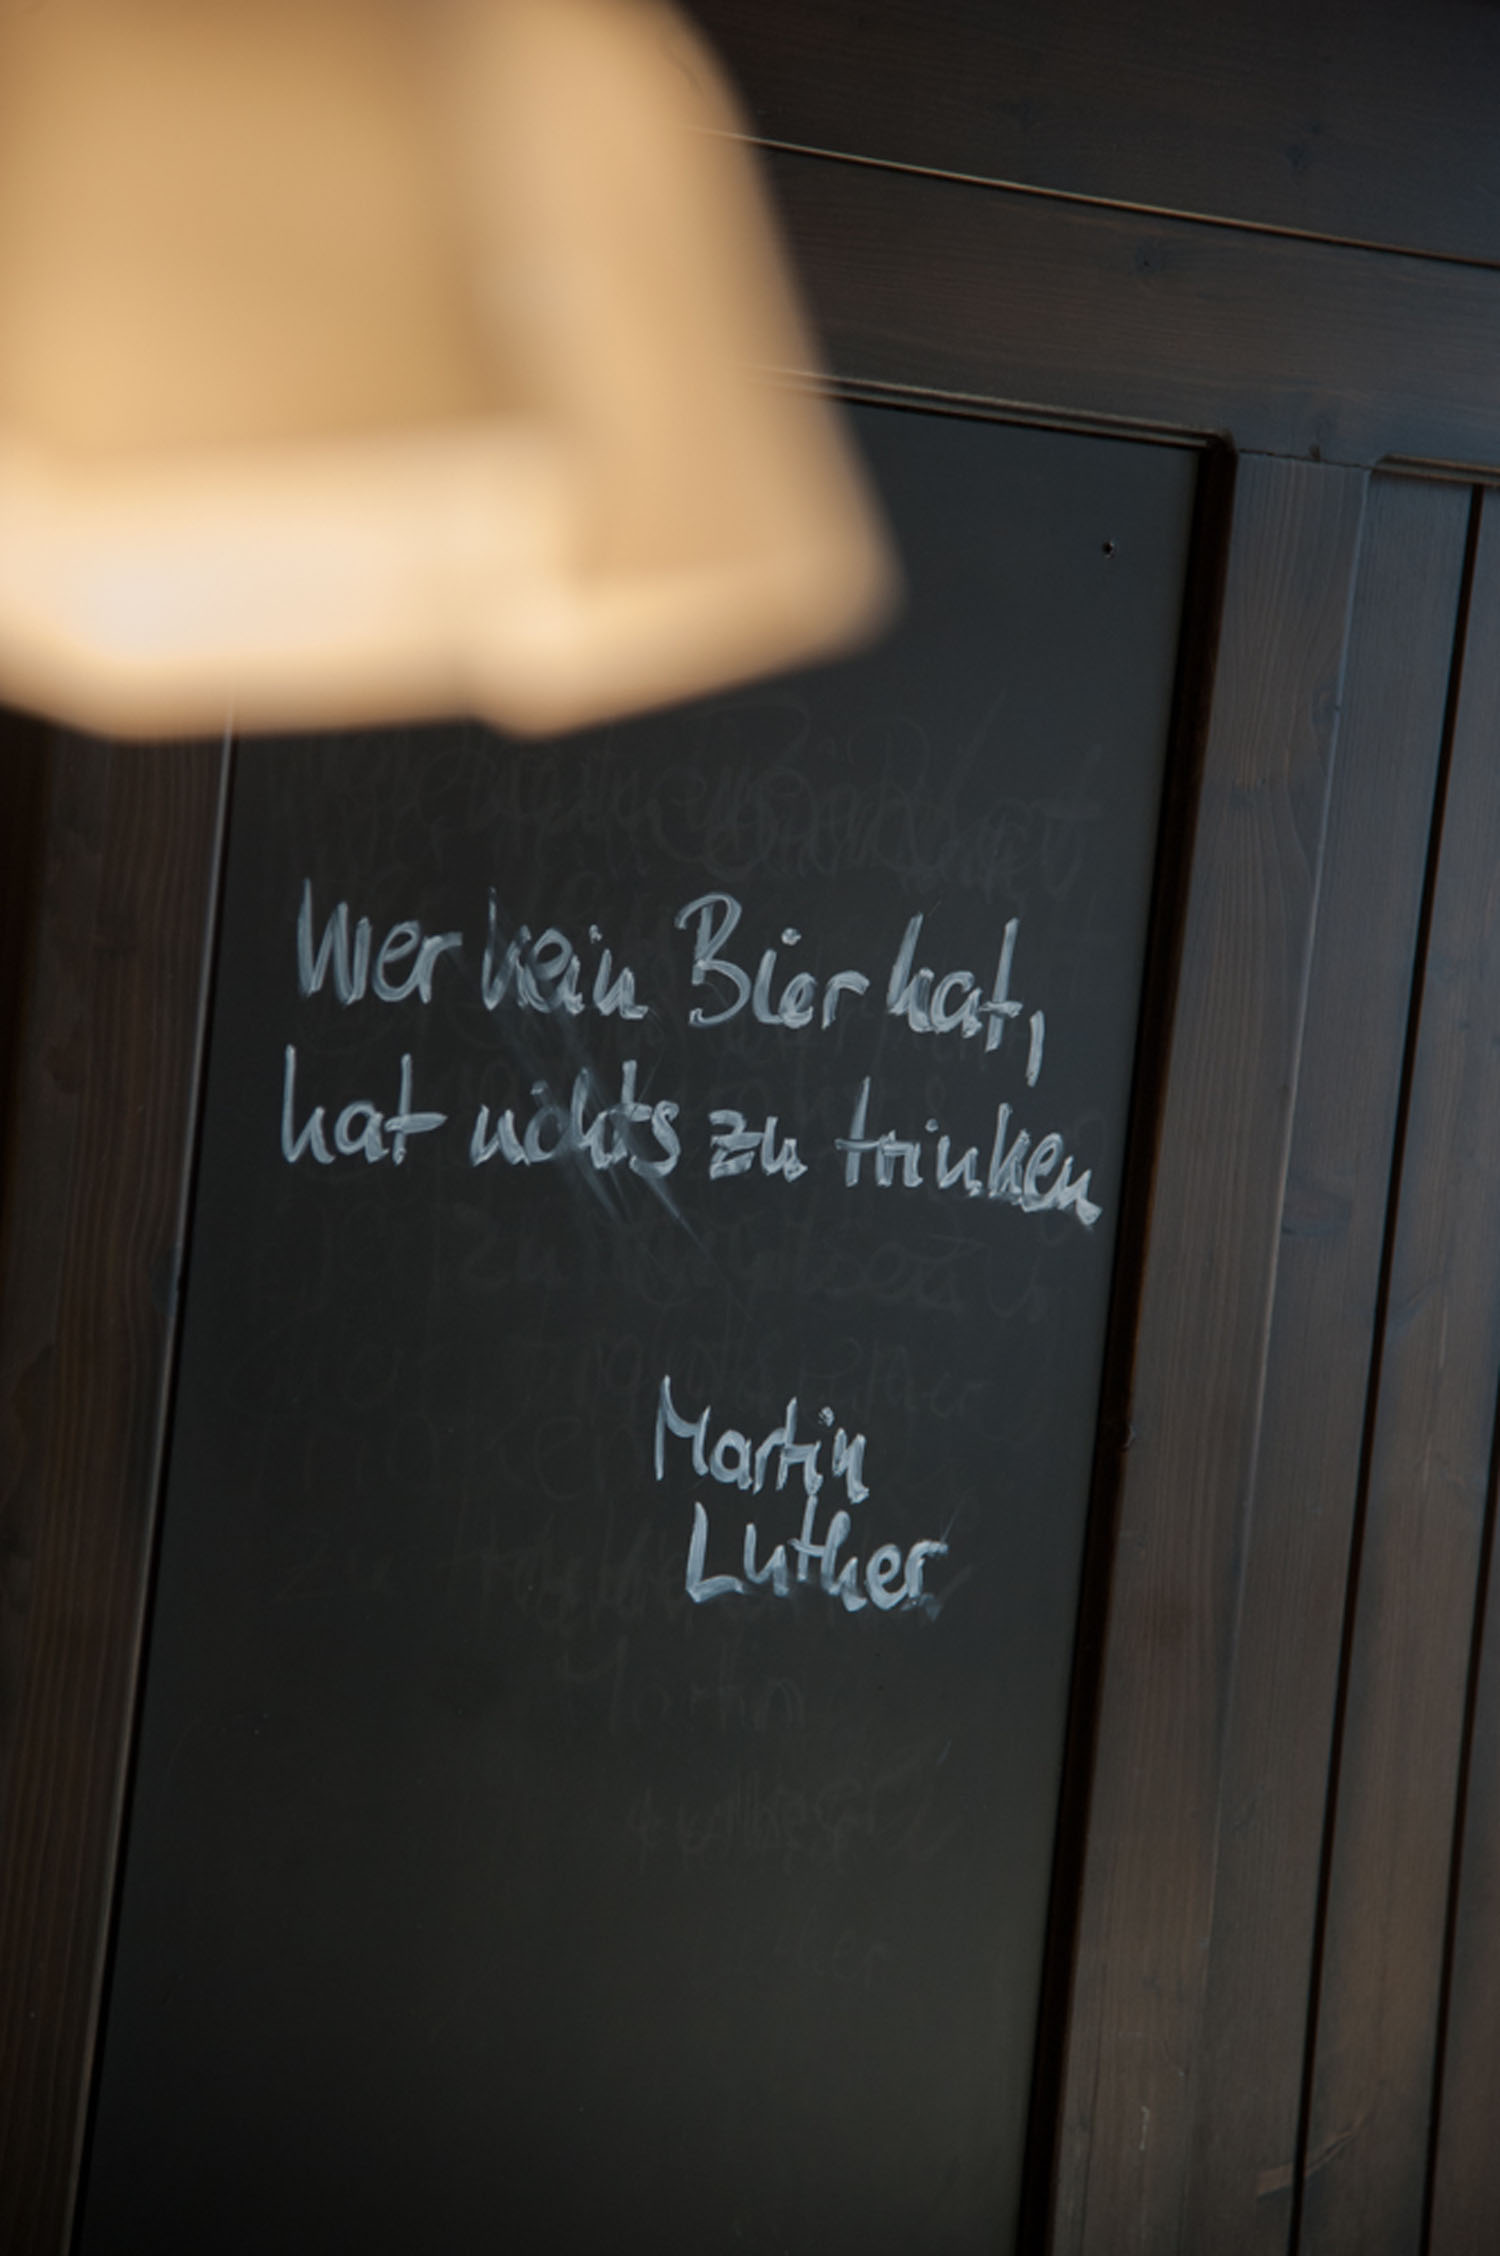 Wer kein Bier hat,
hat nichts zu trinken
Martin
Luther